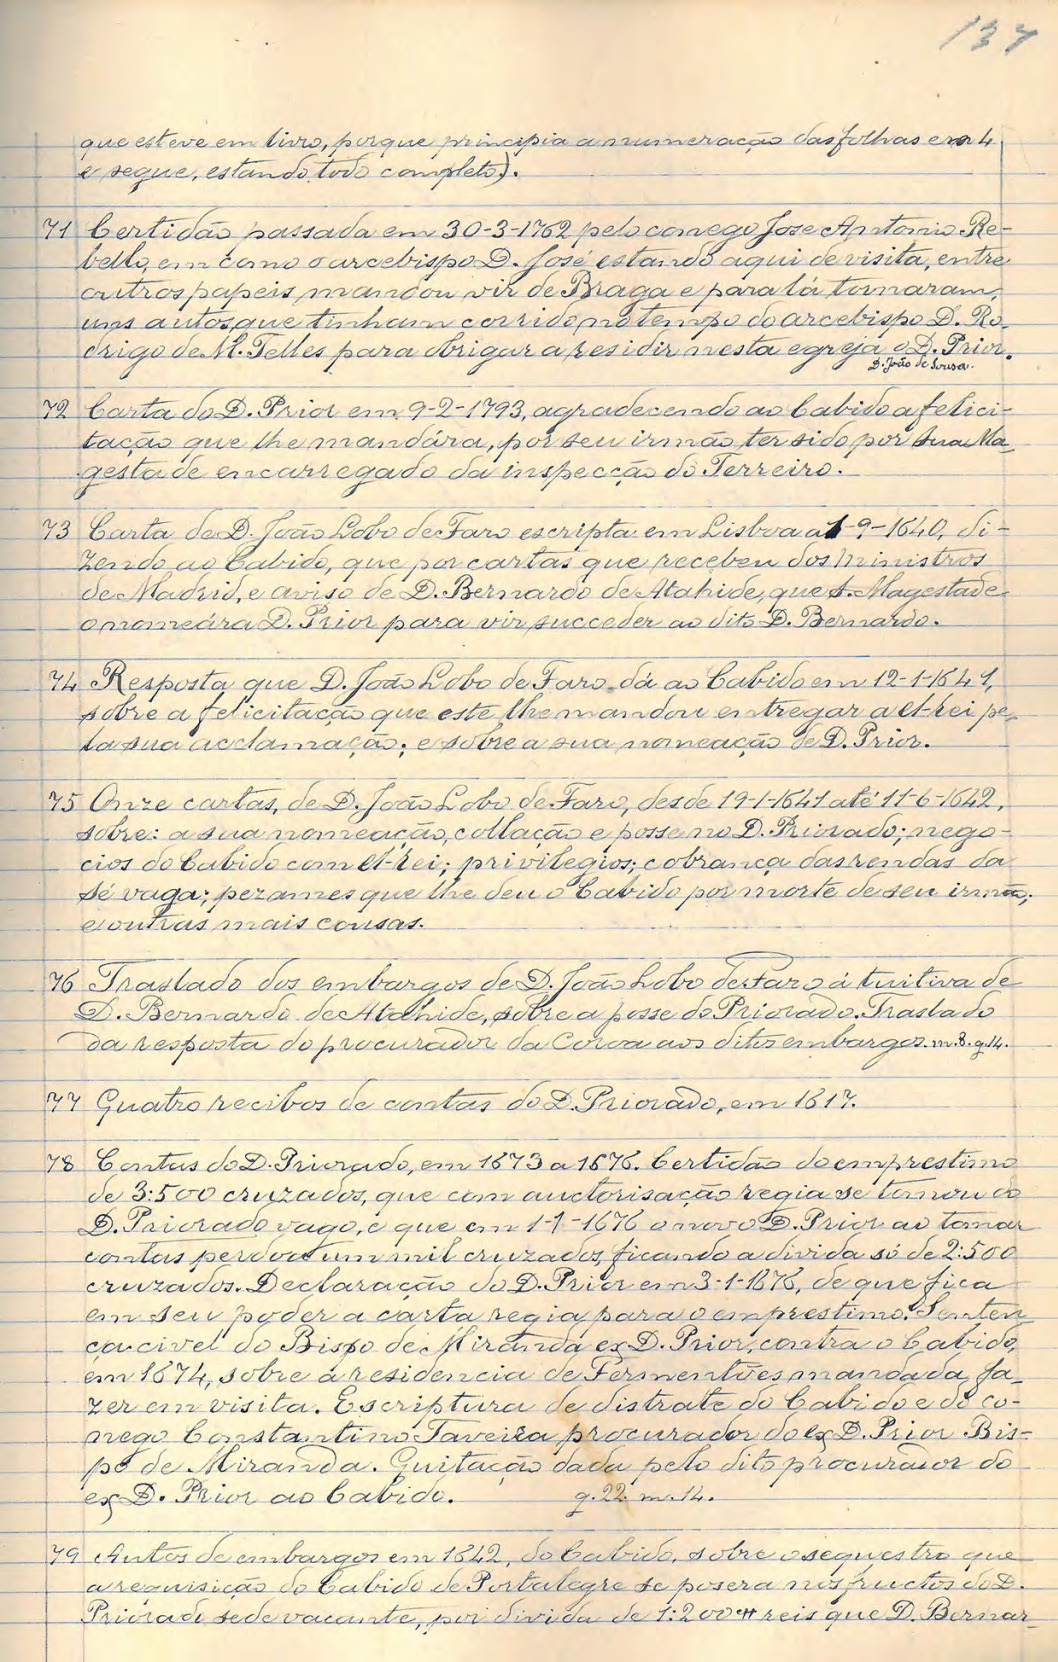 137
que esteve em livro, porque principia a numeração das folhas em 4
e segue, estando todo completo).
71 Certidão passada em 30-3-1762 pelo conego Jose Antonio Re-
bello, em como o arcebispo D. José estando aqui de visita, entre
outros papeis, mandou vir de Braga e para lá tornaram,
uns autos, que tinham corrido, no tempo do arcebispo D. Ro-
drigo de M. Telles para obrigar a residir nesta egreja o D. Prior.
D. João de Sousa.
72 Carta do D. Prior em 9-2-1793, agradecendo ao Cabido a felici-
tação que lhe mandára, por seu irmão ter sido por sua Ma-
gestade encarregado da inspecção do Terreiro.
73 Carta de D. João Lobo de Faro escripta em Lisboa a 1-9-1640, di-
zendo ao Cabido, que por cartas que recebeu dos Ministros
de Madrid, e aviso de D. Bernardo de Atahide, que S. Magestade
o nomeára D. Prior para vir succeder ao dito D. Bernardo.
74 Resposta que D. João Lobo de Faro dá ao Cabido em 12-1-1641,
sobre a felicitação que este lhe mandou entregar a el-rei pe-
la sua acclamação; e sobre a sua nomeação de D. Prior.
75 Onze cartas, de D. João Lobo de Faro, desde 19-1-1641 até 11-6-1642,
sobre: a sua nomeação, collação e posse no D. Priorado; nego-
cios do Cabido com el-rei; privilegios; cobrança das rendas da
Sé vaga; pezames que lhe deu o Cabido por morte de seu irmão;
e outras mais cousas.
76 Traslado dos embargos de D. João Lobo de Faro á tuitiva de
D. Bernardo de Atahide, sobre a posse do Priorado. Traslado
da resposta do procurador da Coroa aos ditos embargos. m. 8. g. 14.
77 Quatro recibos de contas do D. Priorado, em 1617.
78 Contas do D. Priorado, em 1673 a 1676. Certidão do emprestimo
de 3:500 cruzados, que com auctorisação regia se tomou do
D. Priorado vago, e que em 1-1-1676 o novo D. Prior ao tomar
contas perdoa um mil cruzados, ficando a divida só de 2:500
cruzados. Declaração do D. Prior em 3-1-1676, de que fica
em seu poder a carta regia para o emprestimo. Senten-
ça civel do Bispo de Miranda ex D. Prior, contra o Cabido,
em 1674, sobre a residencia de Fermentões mandada fa-
zer em visita. Escriptura de distrate do Cabido e do co-
nego Constantino Taveira procurador do ex D. Prior Bis-
po de Miranda. Quitação dada pelo dito procurador do
ex D. Prior ao Cabido. g. 22 m. 14.
79 Autos de embargos em 1642, do Cabido, sobre o sequestro que
a requisição do Cabido de Portalegre se posera nos fructos do D.
Priorado sede vacante, por divida de 1:200# reis que D. Bernar-